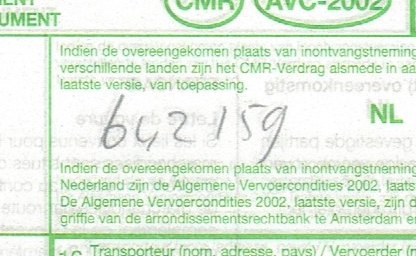 ENT
UMENT
CMR
AVC-2002
Indien de overeengekomen plaats van inontvangstneming
verschillende landen zijn het CMR-Verdrag alsmede in aa
laatste versie, van toepassing.
NL
642159
Indien de overeengekomen plaats van inontvangstneming
Nederland zijn de Algemene Vervoercondities 2002, laats
De Algemene Vervoercondities 2002, laatste versie, zijn d
griffie van de arrondissementsrechtbank te Amsterdam e
16 Transporteur (nom, adresse, pays) / Vervoerder (n